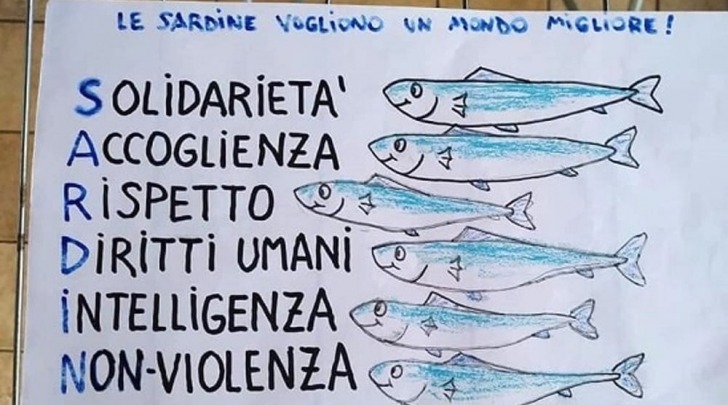 LE SARDINE VOGLIONO UN MONDO MIGLIORE!
SOLIDARIETA'
ACCOGLIENZA
RISPETTO
DIRITTI UMANI
INTELLIGENZA
NON-VIOLENZA